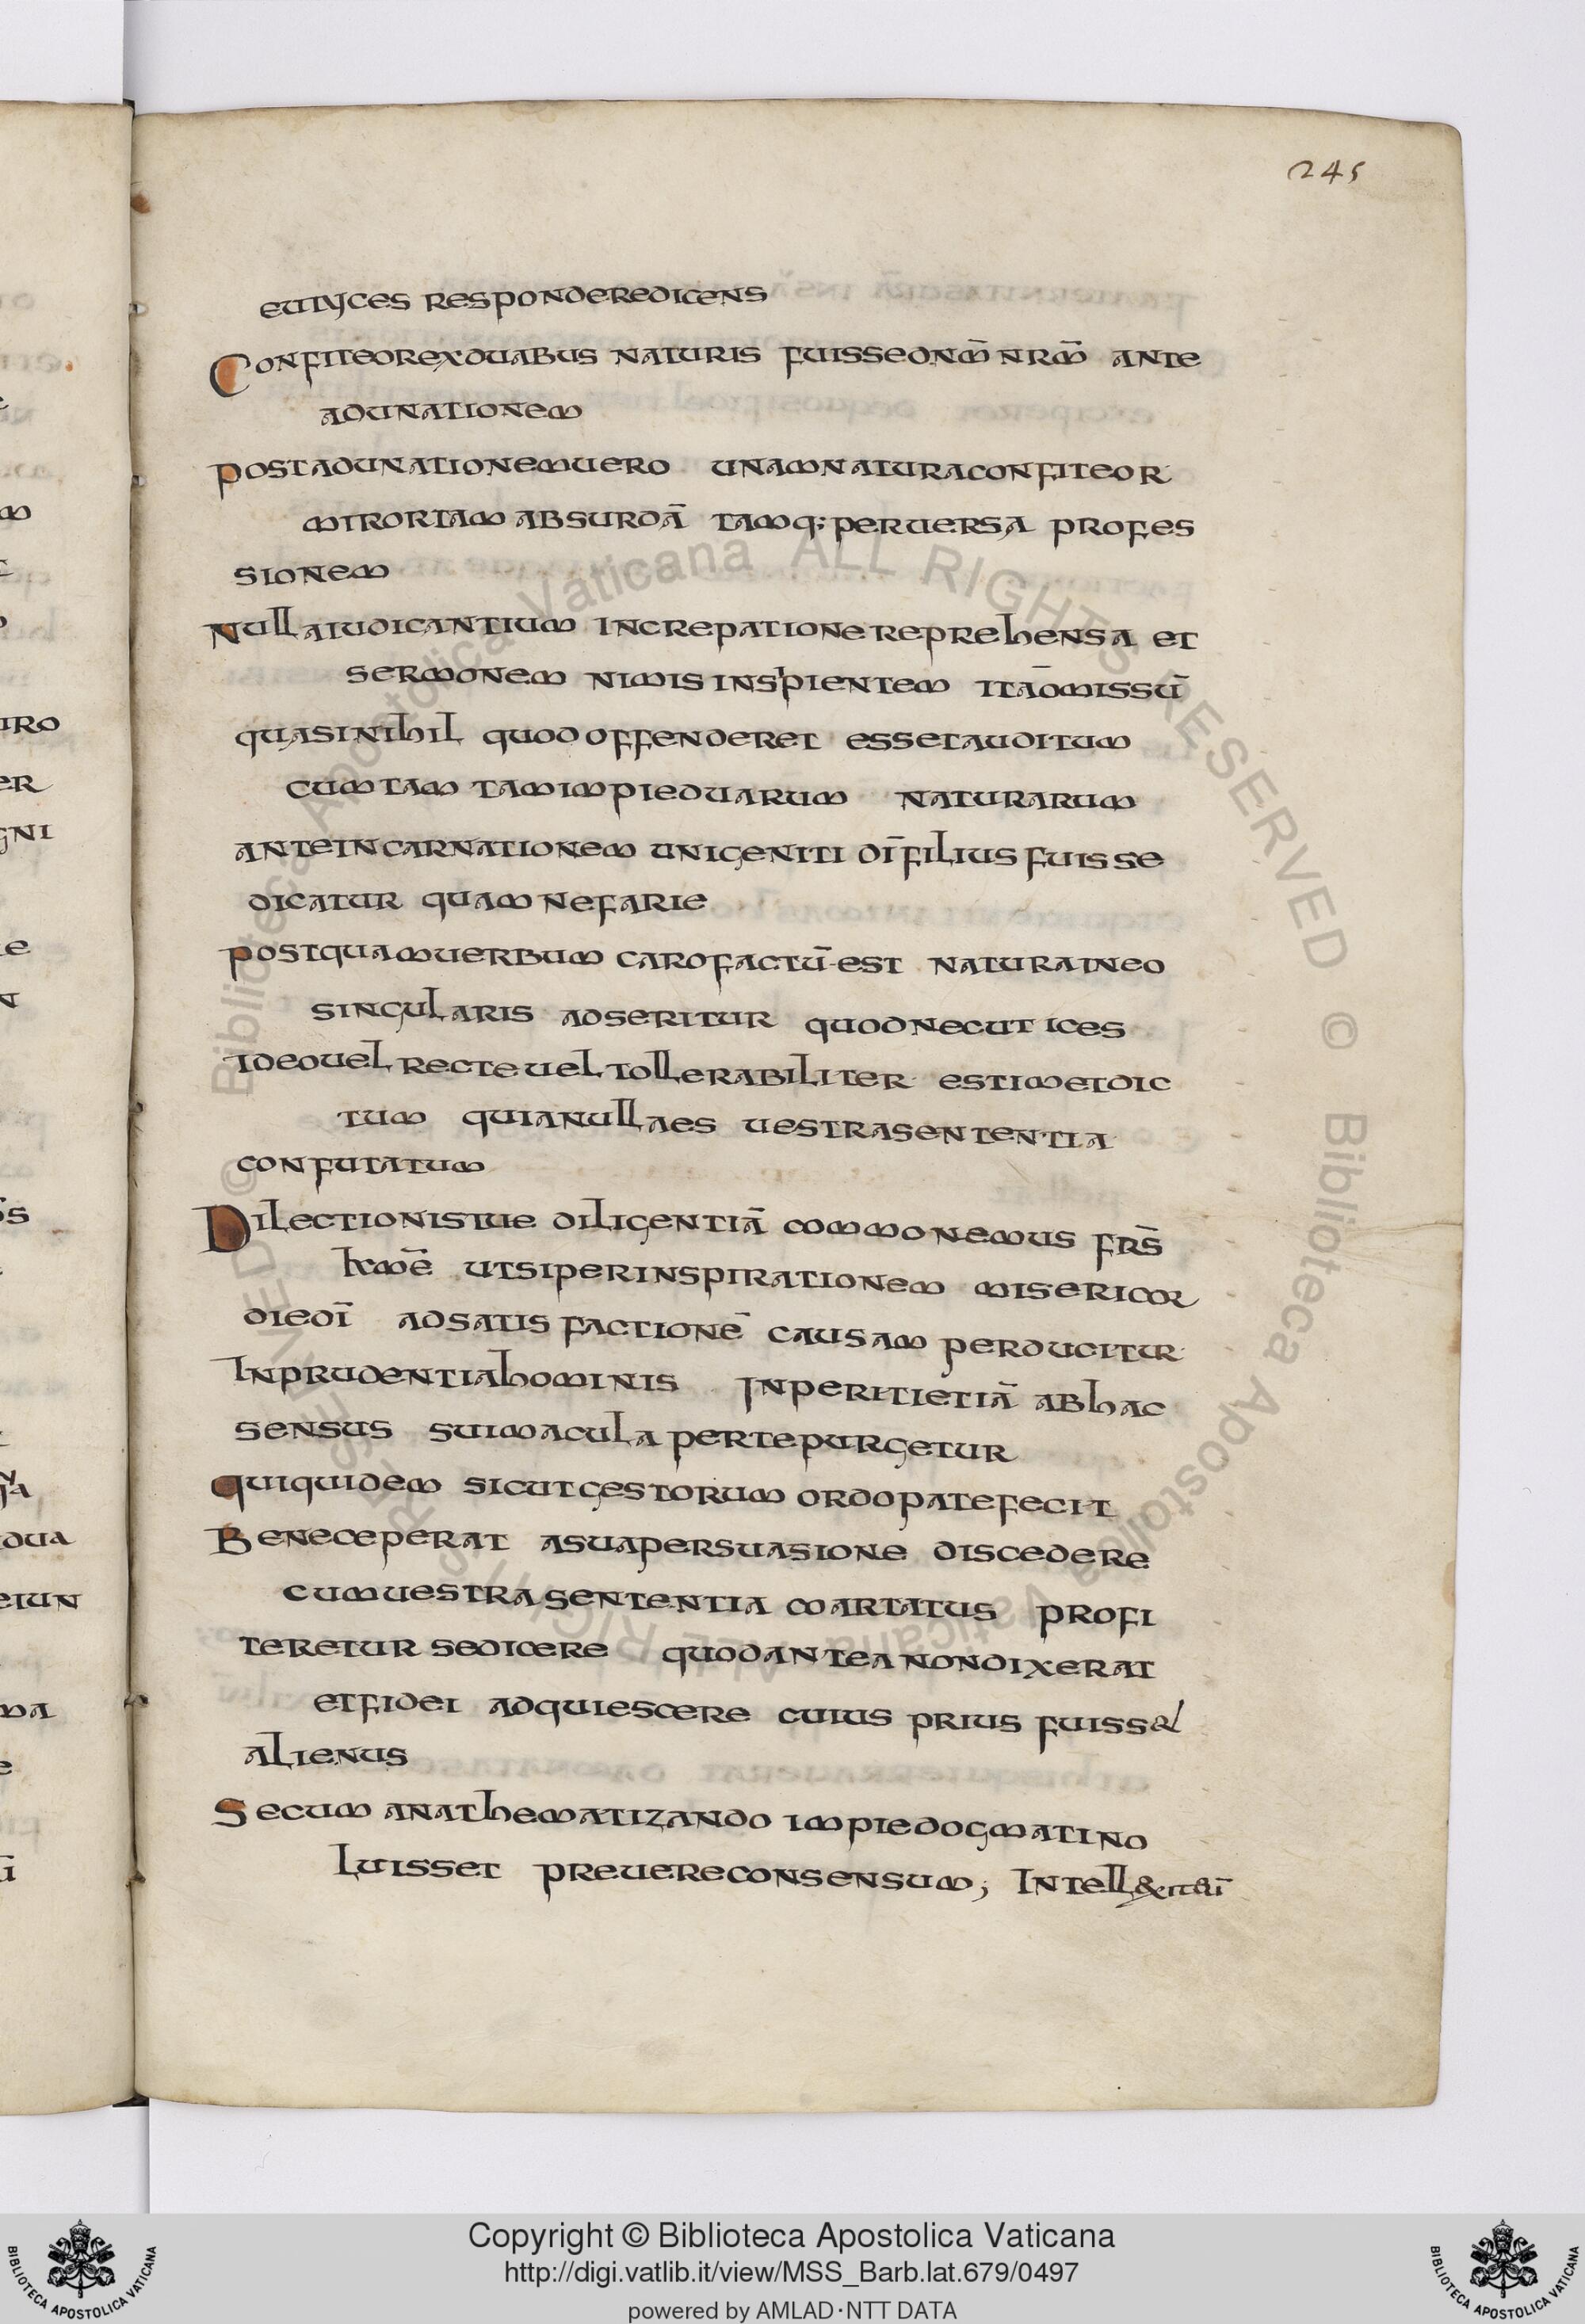 245
eutyces responderedicens
Confiteorexduabus naturis fuissednm̄ nrm̄ ante
adunationem
postadunationemuero unamnaturaconfiteor
mirortam absurdā tamq; peruersa profes
sionem
Nulla iudicantium increpatione reprehensa et
sermonem nimis insipientem itāomissū
quasinihil quod offenderet essetauditum
cumtam tamimpieduarum naturarum
anteincarnationem unigeniti dī filius fuisse
dicatur quam nefarie
postquamuerbum carofactū est naturaineo
singularis adseritur quodnecutices
Ideouel recte uel tollerabiliter estimetdic
tum quianullaes uestrasententia
confutatum
Dilectionistue diligentiā commonemus frs̄
kmē utsiperinspirationem misericor
diedī adsatisfactionē causam perducitur
Inprudentiahominis Inperitietiā abhac
sensus suimacula pertepurgetur
quiquidem sicutgestorum ordopatefecit
Beneceperat asuapersuasione discedere
cumuestrasententia coartatus profi
teretur sedicere quodanteanondixerat
etfidei adquiescere cuius prius fuisset
alienus
Secum anathematizando impiedogmatino
luisset preuereconsensum; Intell&
Copyright © Biblioteca Apostolica Vaticana
http://digi.vatlib.it/view/MSS_Barb.lat.679/0497
powered by AMLAD·NTT DATA
BIBLIOTECA APOSTOLICA VATICANA
BIBLIOTECA APOSTOLICA VATICANA
© Biblioteca Apostolica Vaticana ALL RIGHTS RESERVED © Biblioteca Apostolica Vaticana ALL RIGHTS RESERVED